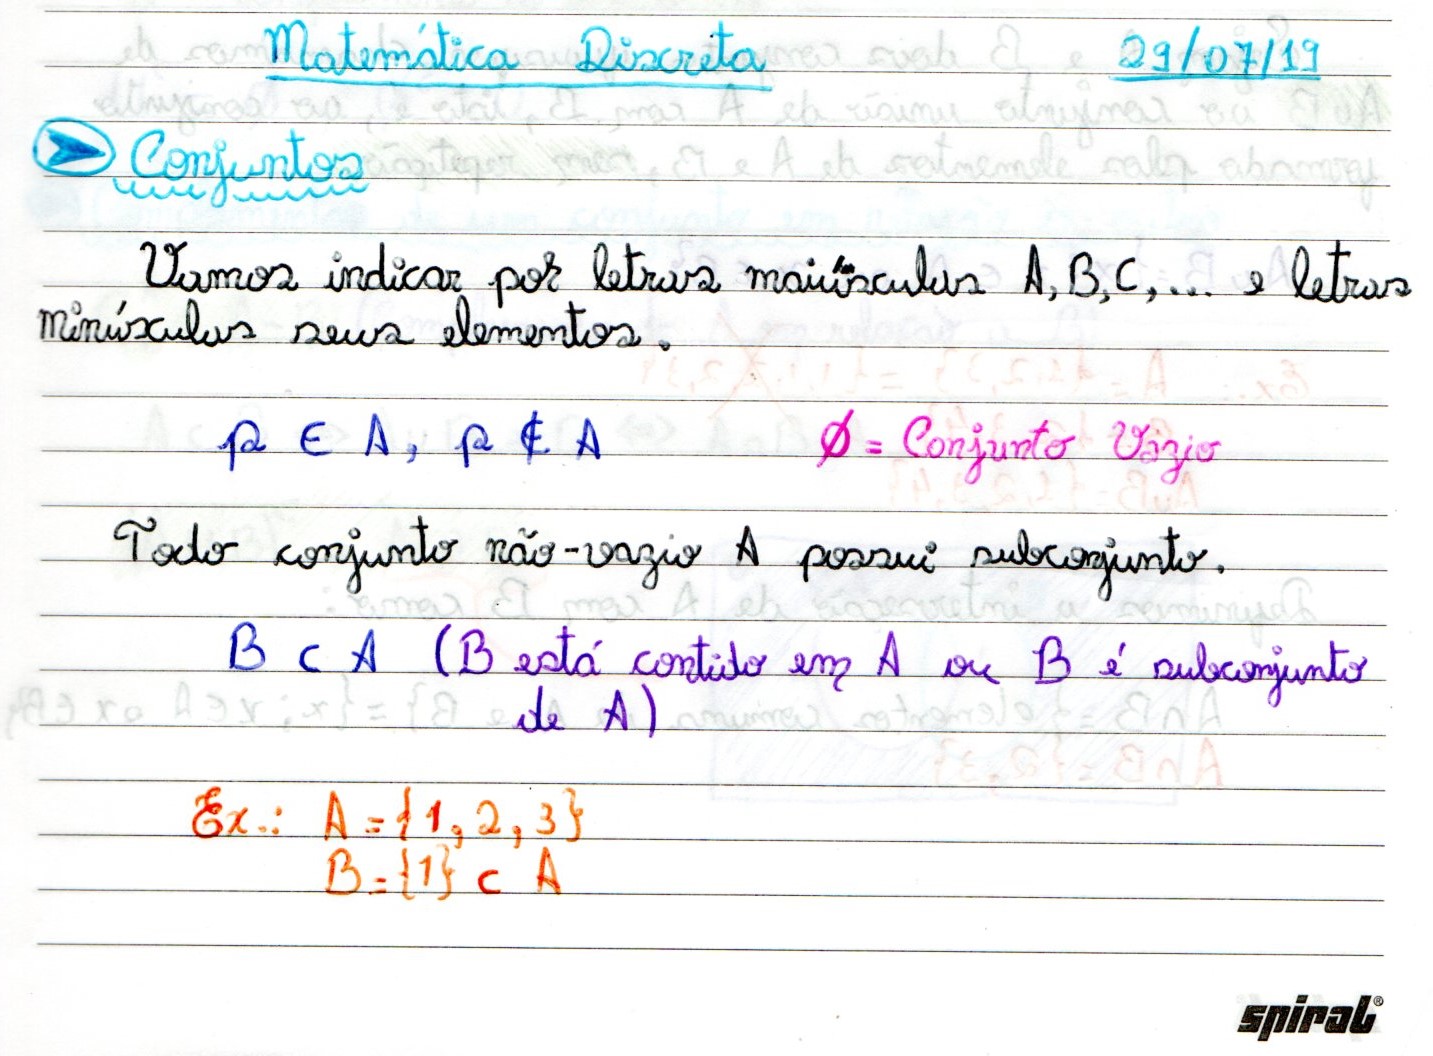 Matemática Discreta 29/07/19
Conjuntos
Vamos indicar por letras maiúsculas A, B, C, ... e letras
minúsculas seus elementos.
p ∈ A, p ∉ A ∅ = Conjunto Vázio
Todo conjunto não-vazio A possui subconjunto.
B ⊂ A (B está contido em A ou B é subconjunto
de A)
Ex.: A = {1, 2, 3}
B = {1} ⊂ A
spiral®